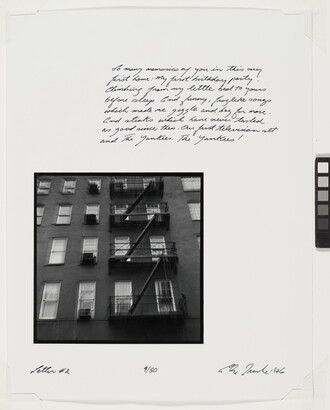 So many memories of you in this my
first home. My first birthday party.
Climbing from my little bed to yours
before sleep. And funny, froglike songs
which made me giggle and beg for more.
And steaks which have never tasted
as good since then. Our first television set
and The Yankees. The Yankees!
Letter #2
9/50